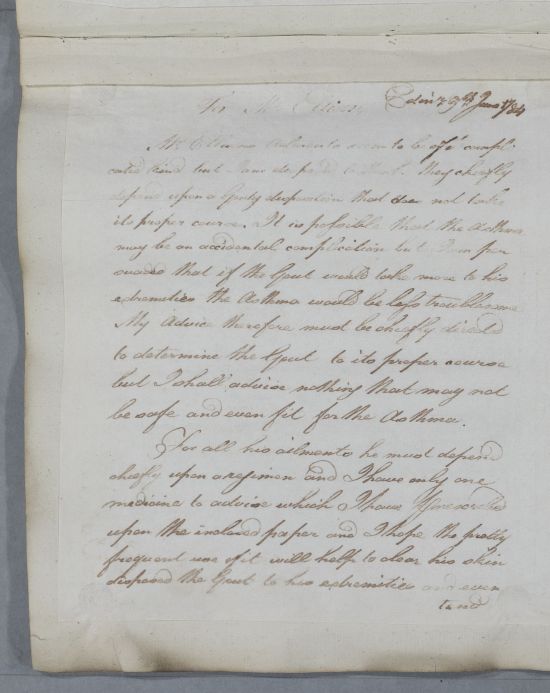 For Mr
Edinr 29th June 1784
Mr ailments seem to be of a compli
cated kind but I am disposed to think they chiefly
depend upon a Gouty disposition that does not take
its proper course. It is possible that the Asthma
may be an accidental complication but I am per
suaded that if the Gout would take more to his
extremities the Asthma would be less troublesome
My Advice therefore must be chiefly directed
to determine the Gout to its proper course
but I shall advise nothing that may not
be safe and even fit for the Asthma.
For all his ailments he must depend
chiefly upon a regimen and I have only one
medicine to advise which I have prescribed
upon the inclosed paper and I hope the pretty
frequent use of it will help to clear his skin
disposed the Gout to his extremities and even
tend